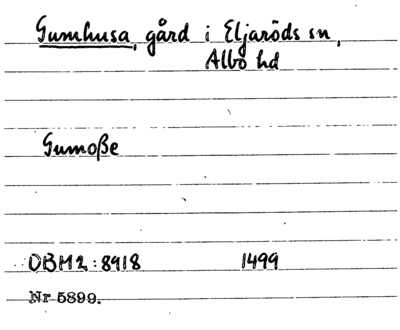 Gumhusa, gård i Eljaröds sn,
Albo hd
Gumoße
DBM2:8918 1499
Nr 5899.